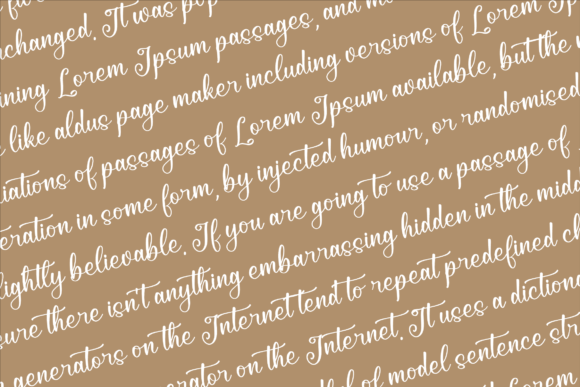 unchanged. It was pop
ining Lorem Ipsum passages, and m
like aldus page maker including versions of Lorem
iations of passages of Lorem Ipsum available, but the
eration in some form, by injected humour, or randomised
lightly believable. If you are going to use a passage of
sure there isn't anything embarrassing hidden in the midd
generators on the Internet tend to repeat predefined ch
erator on the Internet. It uses a dictiona
of model sentence str
Lorem